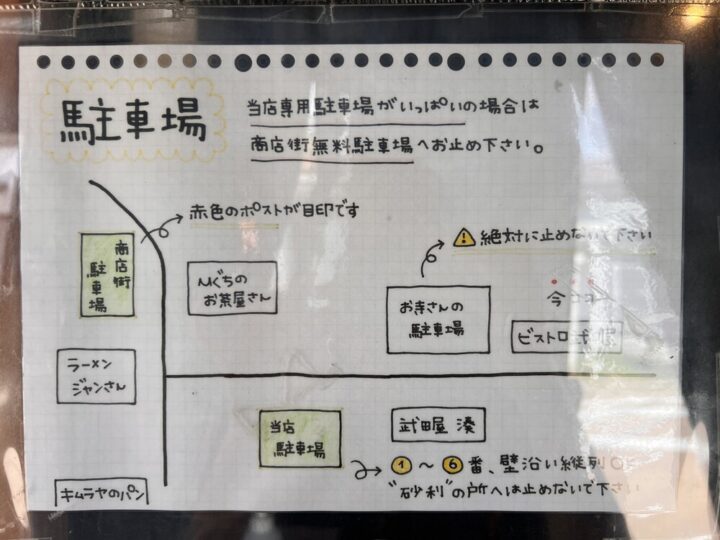 駐車場
当店専用駐車場がいっぱいの場合は
商店街無料駐車場へお止め下さい。
赤色のポストが目印です
絶対に止めないで下さい
商店街
駐車場
ひぐちの
お茶屋さん
お寺さんの
駐車場
今ココ
ビストロ武
ラーメン
ジャンさん
当店
駐車場
武田屋 湊
①～⑥番、壁沿い縦列
"砂利"の所へは止めないで下さい
キムラヤのパン